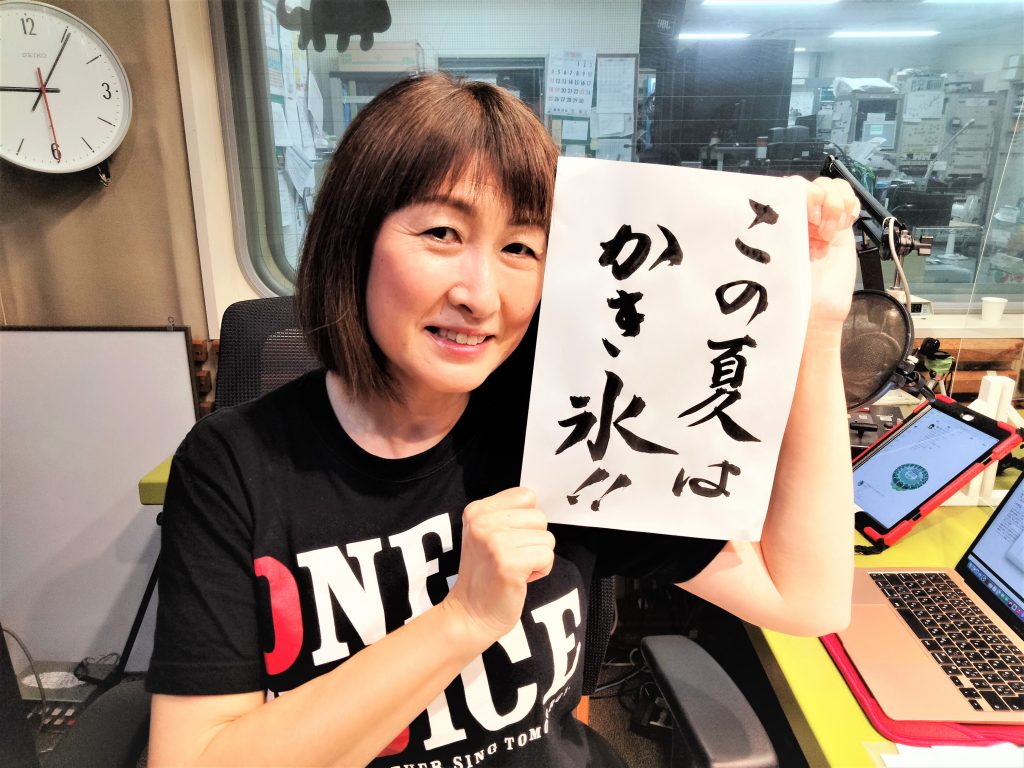 この夏は
かき氷!!
ONE
VOICE
EVER SING TOMO
SEIKO
12
3
6